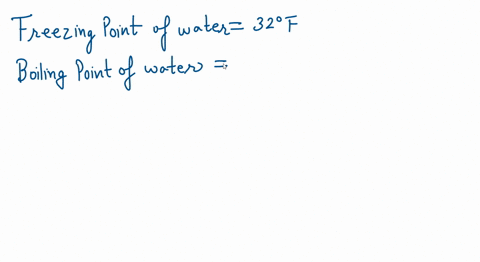 Freezing Point of water = 32°F
Boiling Point of water =